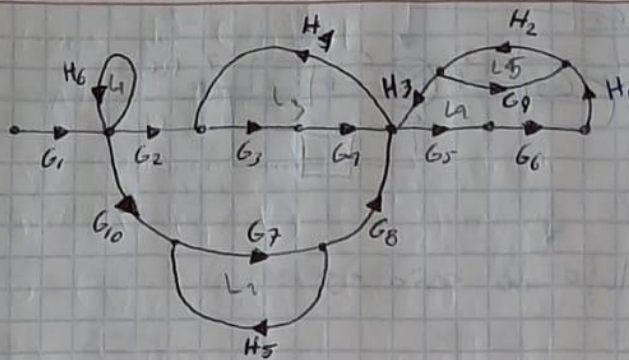 H4 H2
H6 L1 L5
H3 G9 H1
L3 L4
G1 G2 G3 G4 G5 G6
G10 G7 G8
L2
H5